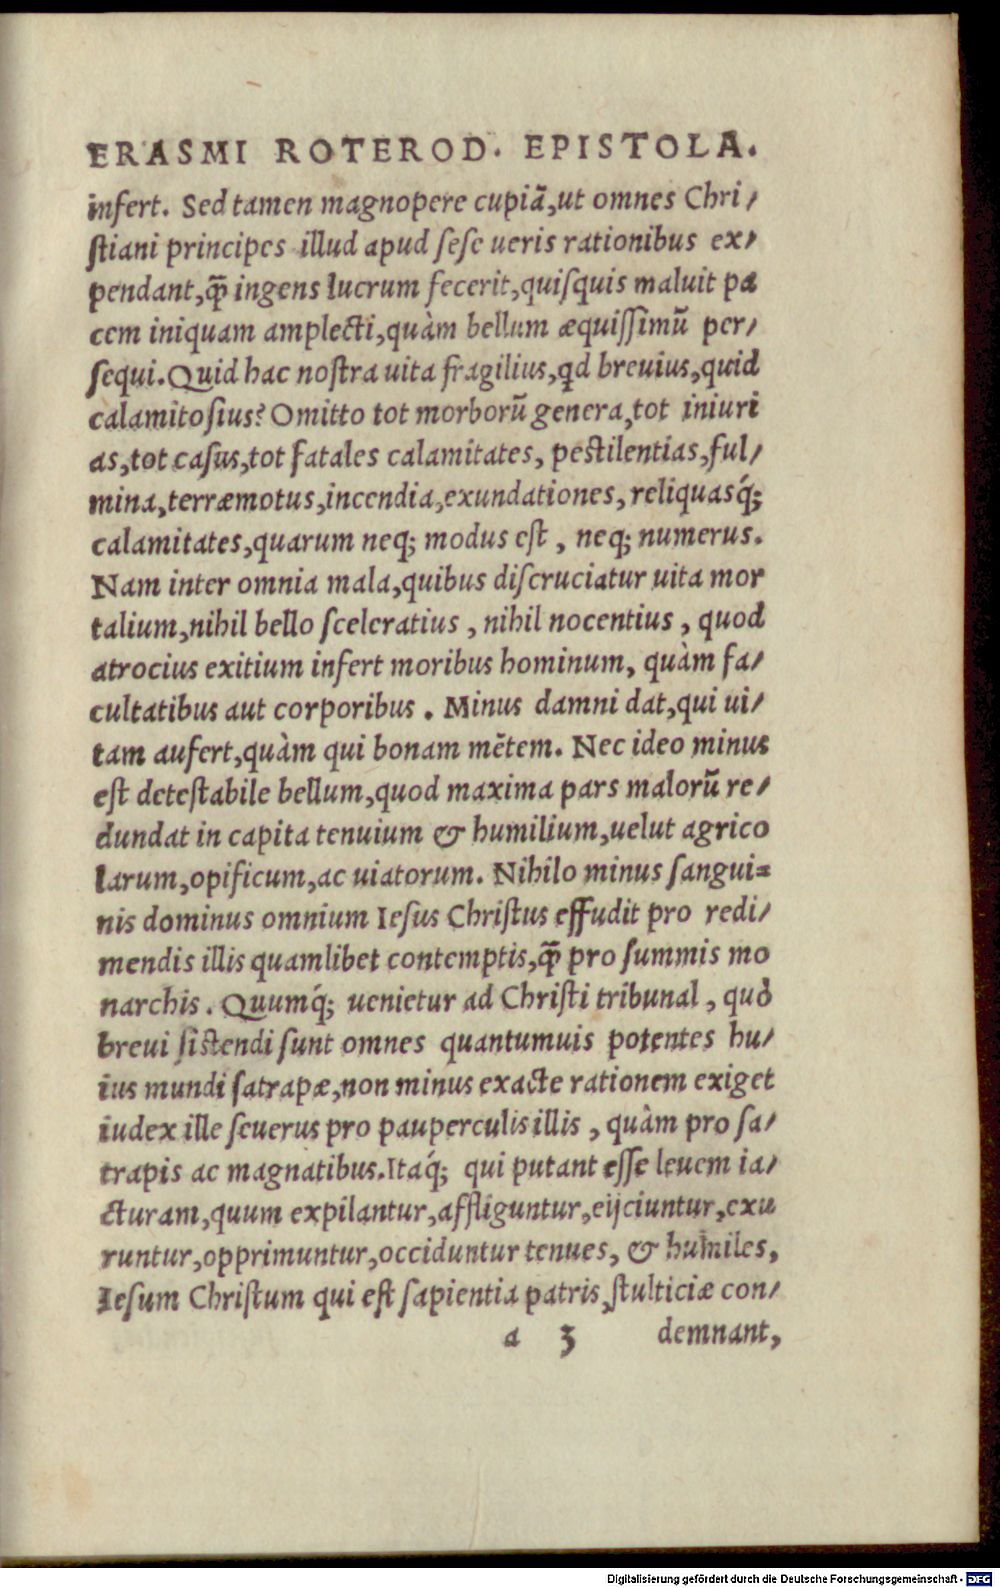 ERASMI ROTEROD. EPISTOLA.
infert. Sed tamen magnopere cupiã,ut omnes Chri/
ſtiani principes illud apud ſeſe ueris rationibus ex/
pendant,q̃ ingens lucrum fecerit,quiſquis maluit pa
cem iniquam amplecti,quàm bellum æquiſſimũ per/
ſequi.Quid hac noſtra uita fragilius,qd breuius,quid
calamitoſius? Omitto tot morborũ genera,tot iniuri
as,tot caſus,tot fatales calamitates, peſtilentias,ful/
mina,terræmotus,incendia,exundationes, reliquasq́;
calamitates,quarum neq; modus eſt , neq; numerus.
Nam inter omnia mala,quibus diſcruciatur uita mor
talium,nihil bello ſceleratius , nihil nocentius , quod
atrocius exitium infert moribus hominum, quàm fa/
cultatibus aut corporibus . Minus damni dat,qui ui/
tam aufert,quàm qui bonam mẽtem. Nec ideo minus
eſt deteſtabile bellum,quod maxima pars malorũ re/
dundat in capita tenuium & humilium,uelut agrico
larum,opificum,ac uiatorum. Nihilo minus ſangui=
nis dominus omnium Ieſus Chriſtus effudit pro redi/
mendis illis quamlibet contemptis,q̃ pro ſummis mo
narchis . Quumq́; uenietur ad Chriſti tribunal , quò
breui ſiſtendi ſunt omnes quantumuis potentes hu/
ius mundi ſatrapæ,non minus exacte rationem exiget
iudex ille ſeuerus pro pauperculis illis , quàm pro ſa/
trapis ac magnatibus.Itaq́; qui putant eſſe leuem ia/
cturam,quum expilantur,affliguntur,eijciuntur,exu
runtur,opprimuntur,occiduntur tenues, & humiles,
Ieſum Chriſtum qui eſt ſapientia patris,ſtulticiæ con/
a 3 demnant,
Digitalisierung gefördert durch die Deutsche Forschungsgemeinschaft - DFG